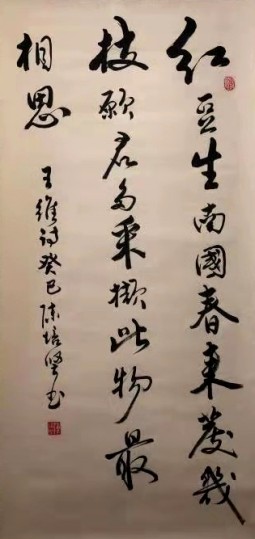 红豆生南國春来發幾
枝願君多采擷此物最
相思
王維诗癸巳陈培坚书